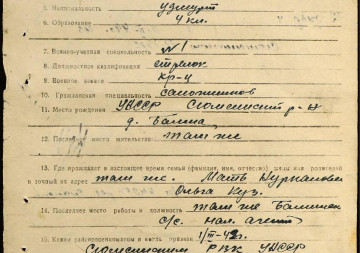 5. Национальность удмурт
6. Образование 4 кл.
7. Военно-учетная специальность №1
8. Должностная квалификация стрелок
9. Военное звание кр-ц
10. Гражданская специальность сапожников
11. Место рождения УАССР Сюмсинск р-н
д. Балма,
12. Последнее место жительства там же
13. Где проживает в настоящее время семья (фамилия, имя, отчество) жены или родителей
и точный их адрес там же. Мать
Ольга Куз.
14. Последнее место работы и должность там же
с/с. нал. агент
15. Каким райвоенкоматом и когда призван 1/III-42г.
РВК УАССР